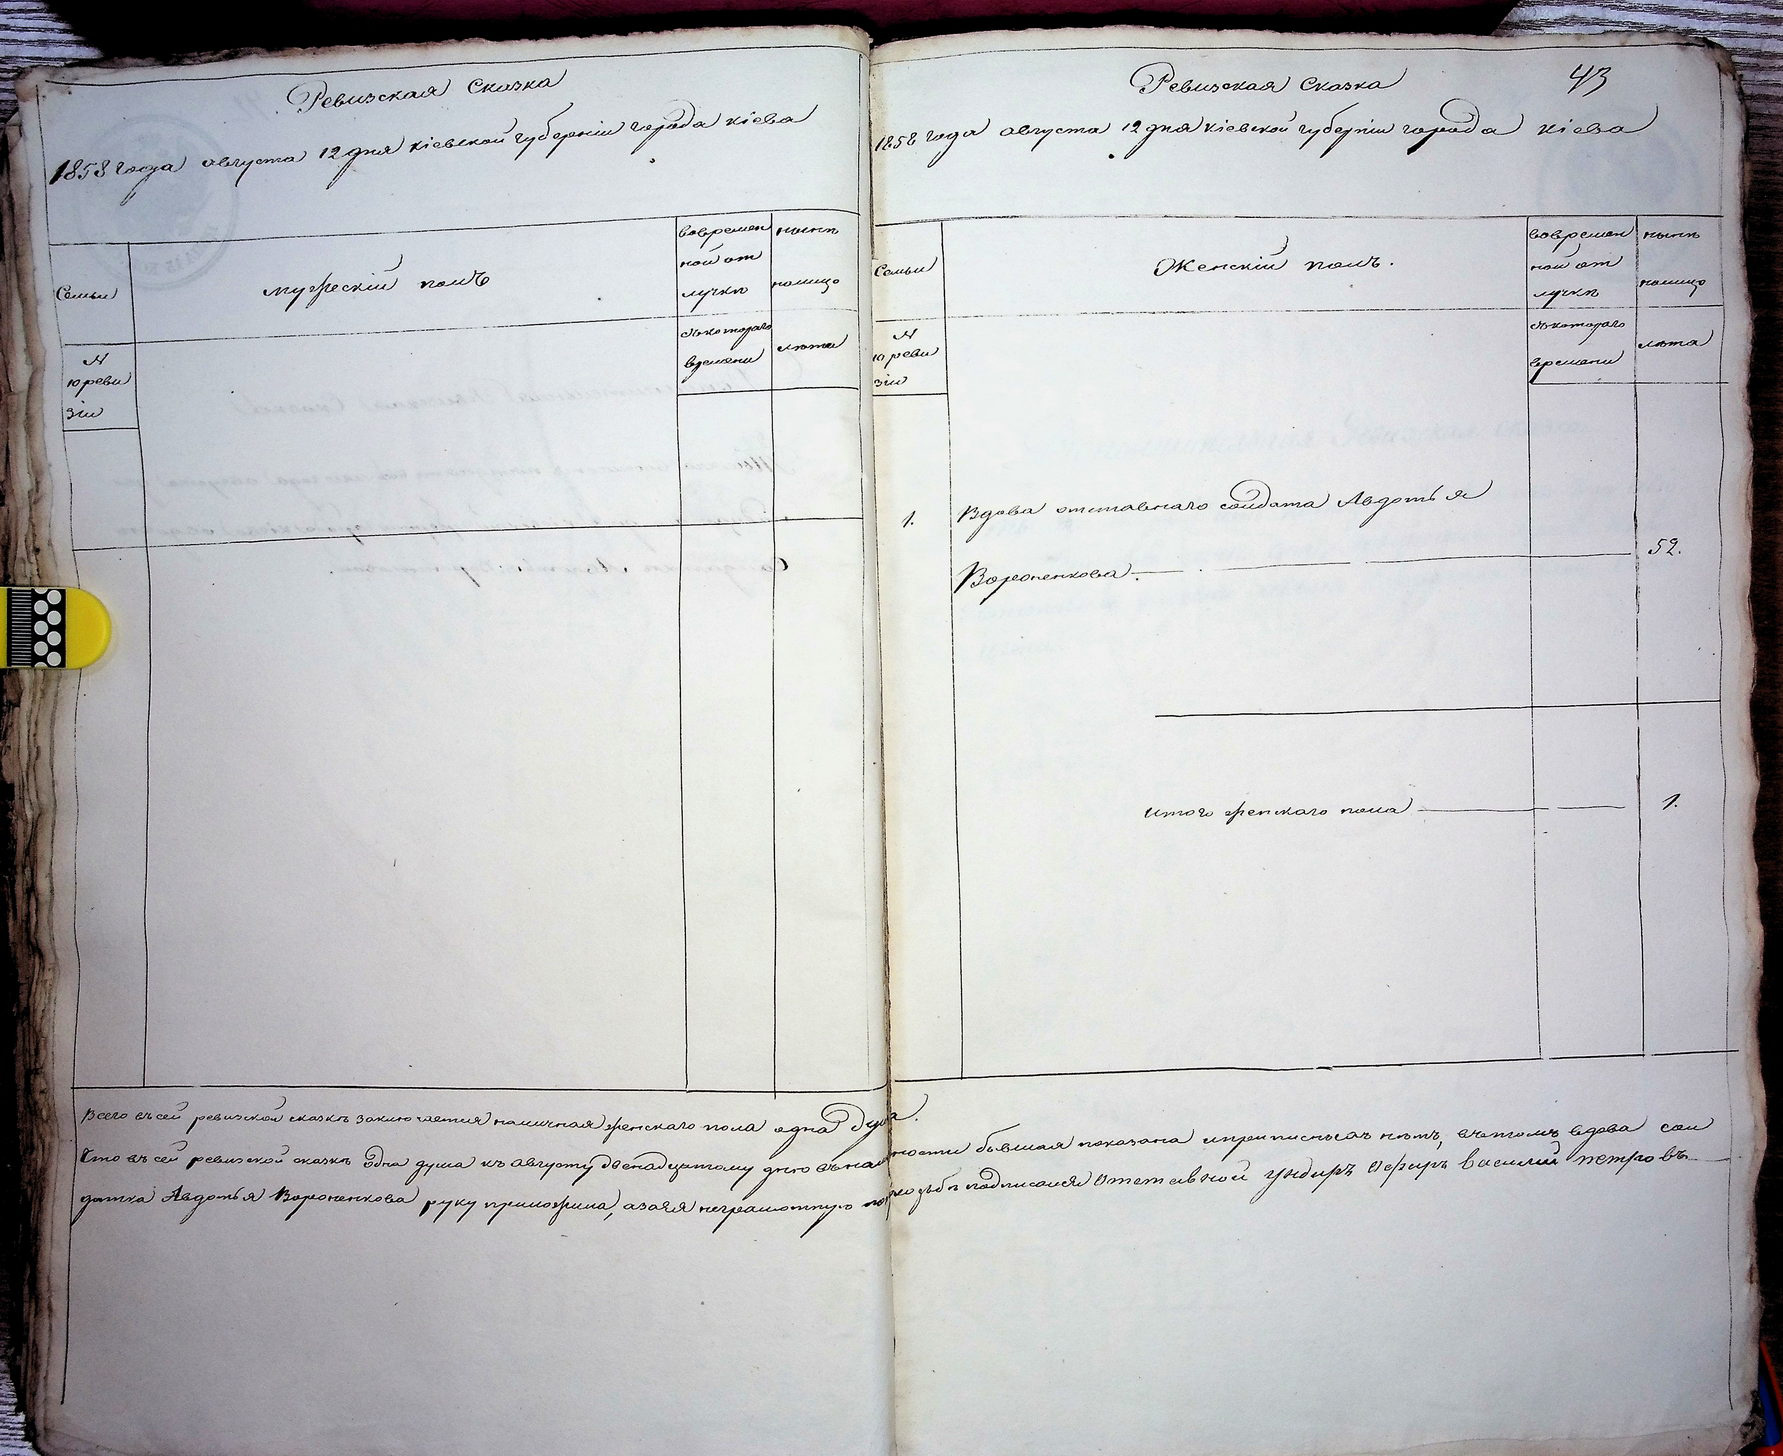 Ревизская Сказка
1858 года августа 12 дня кіевской губерніи города кіева
Семьи
мужескій полъ
вовремен
ной от
лучкѣ
нынѣ
налицо
№
ю реви
зіи
съкотораго
времени
лѣта
Ревизская Сказка
43
1858 года августа 12 дня кіевской губерніи города кіева
Семьи
Женскій полъ.
вовремен
ной от
лучкѣ
нынѣ
налицо
№
ю реви
зіи
съкотораго
времени
лѣта
1.
Вдова отставнаго солдата Авдотья
Вороненкова.
52.
итого женскаго пола
1.
Всего въ сей ревизской сказкѣ заключается наличная женскаго пола одна душа.
Что въ сей ревизской сказкѣ одна душа къ августу двенадцатому дню въ наличности бывшая показана и прописныхъ нѣтъ, въ томъ вдова сол
датка Авдотья Вороненкова руку приложила, а за ея неграмотную по прозьбѣ подписался Отставной Ундиръ Офиръ василий петровъ